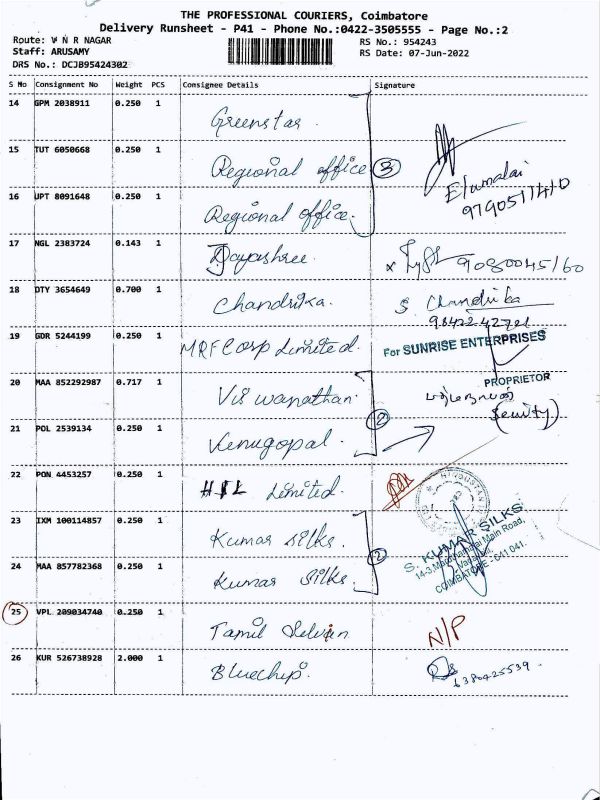 THE PROFESSIONAL COURIERS, Coimbatore
Delivery Runsheet - P41 - Phone No.:0422-3505555 - Page No.:2
Route: V N R NAGAR
Staff: ARUSAMY
DRS No.: DCJB95424302
RS No.: 954243
RS Date: 07-Jun-2022
S No Consignment No Weight PCS Consignee Details Signature
14 GPM 2038911 0.250 1 Greenstar.
15 TUT 6050668 0.250 1 Regional office
3
Elumalai
9790511410
16 UPT 8091648 0.250 1 Regional office.
17 NGL 2383724 0.143 1 Jayashree. x 90800045/60
18 DTY 3654649 0.700 1 Chandrika. S. Chandrika
9842242721
19 GDR 5244199 0.250 1 MRF Corp Limited. For SUNRISE ENTERPRISES
PROPRIETOR
20 MAA 852292987 0.717 1 Viswanathan.
2
21 POL 2539134 0.250 1 Venugopal.
22 PON 4453257 0.250 1 HIL Limited. HINDUSTAN
23 IXM 100114857 0.250 1 Kumar silks.
2
24 MAA 857782368 0.250 1 Kumar silks.
S. KUMAR SILKS
14-3, Main Road,
COIMBATORE - 641 041.
25 VPL 209034740 0.250 1 Tamil Selvan N/P
26 KUR 526738928 2.000 1 Bluechip. 6380425539.